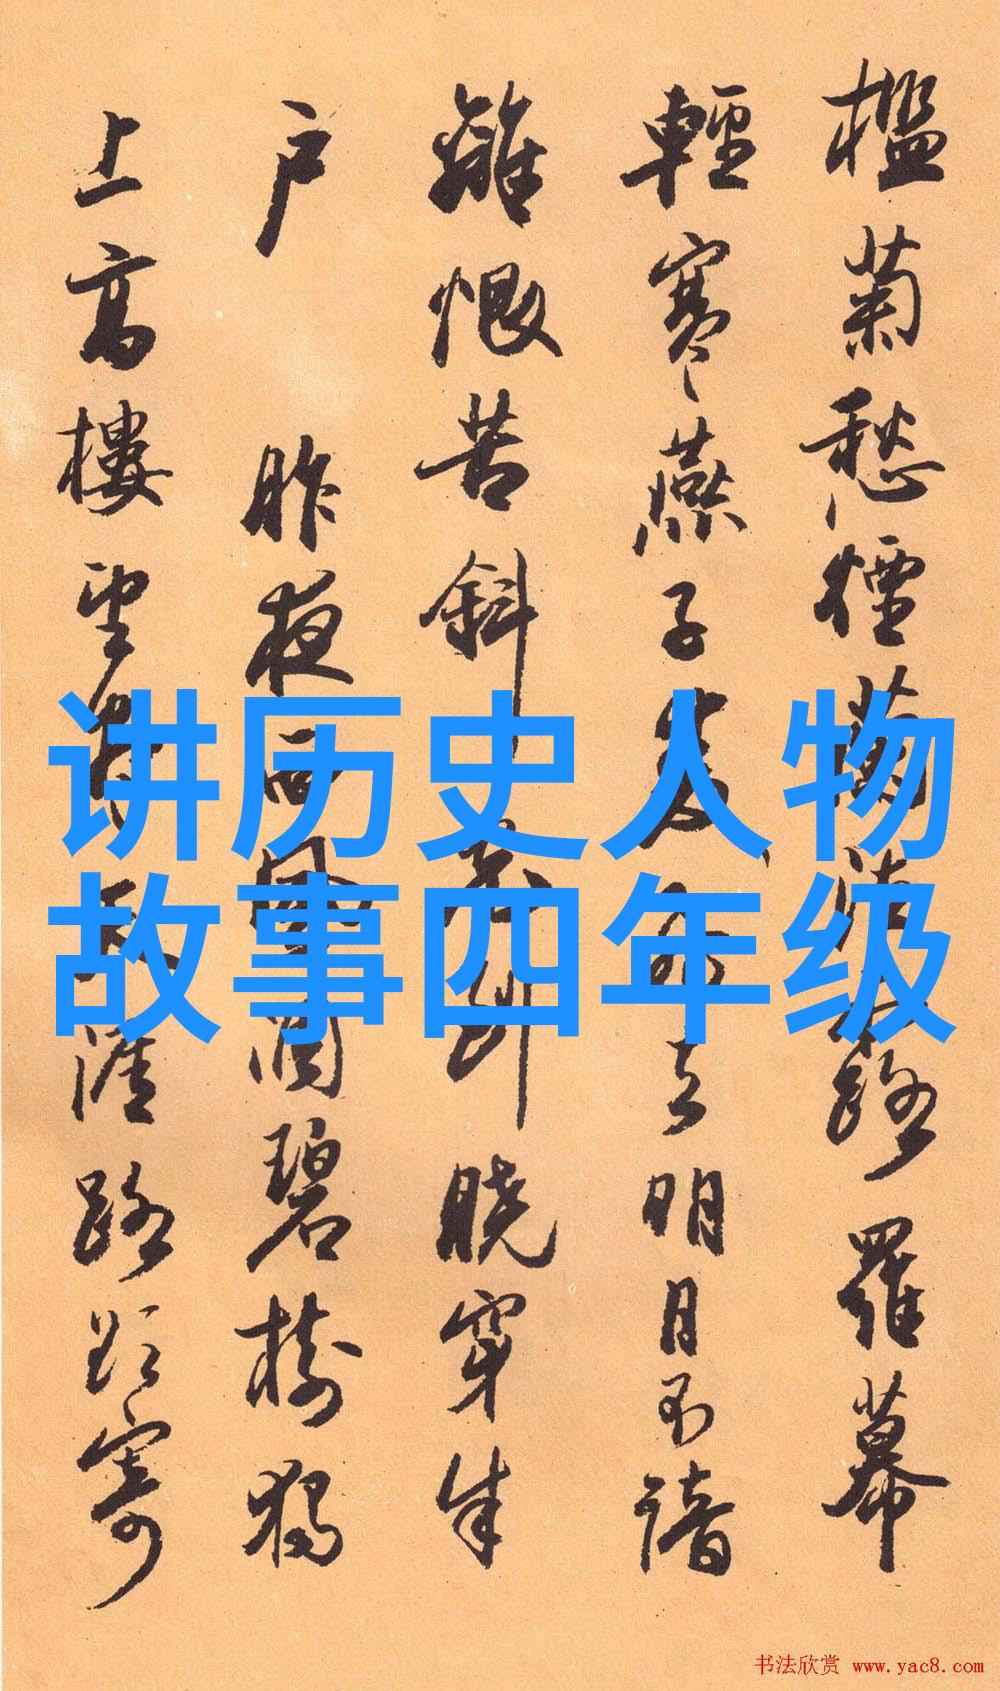 檻菊愁煙蘭泣露羅幕
輕寒燕子雙飛去明月不諳
離恨苦斜光到曉穿朱
户 昨夜西風凋碧樹獨
上高樓望盡天涯路欲寄
讲历史人物
故事四年级
书法欣赏 www.yac8.com